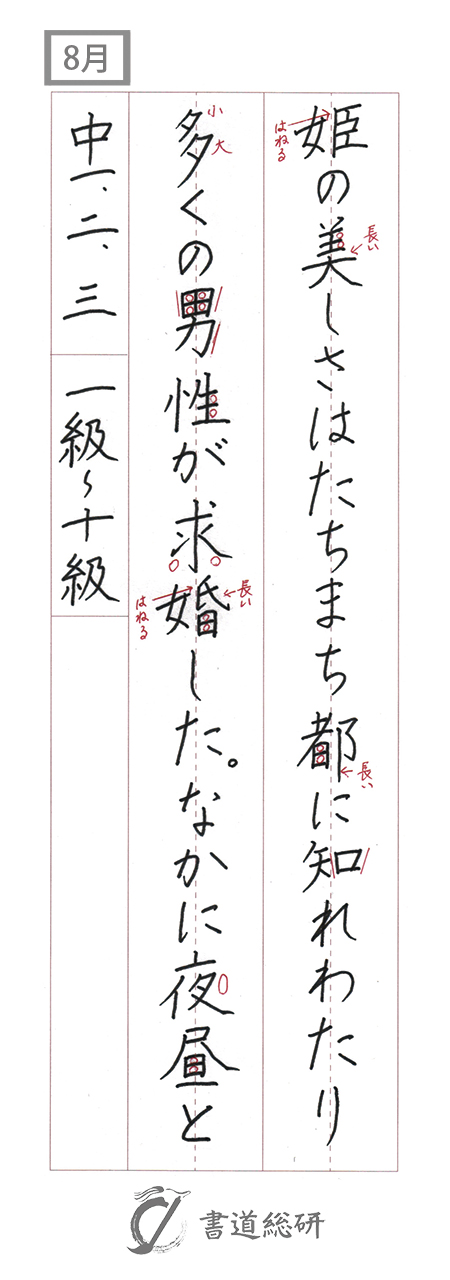 8月
姫の美しさはたちまち都に知れわたり
はねる
長い
長い
多くの男性が求婚した。なかに夜昼と
小
大
はねる
長い
中一、二、三 一級〜十級
書道総研